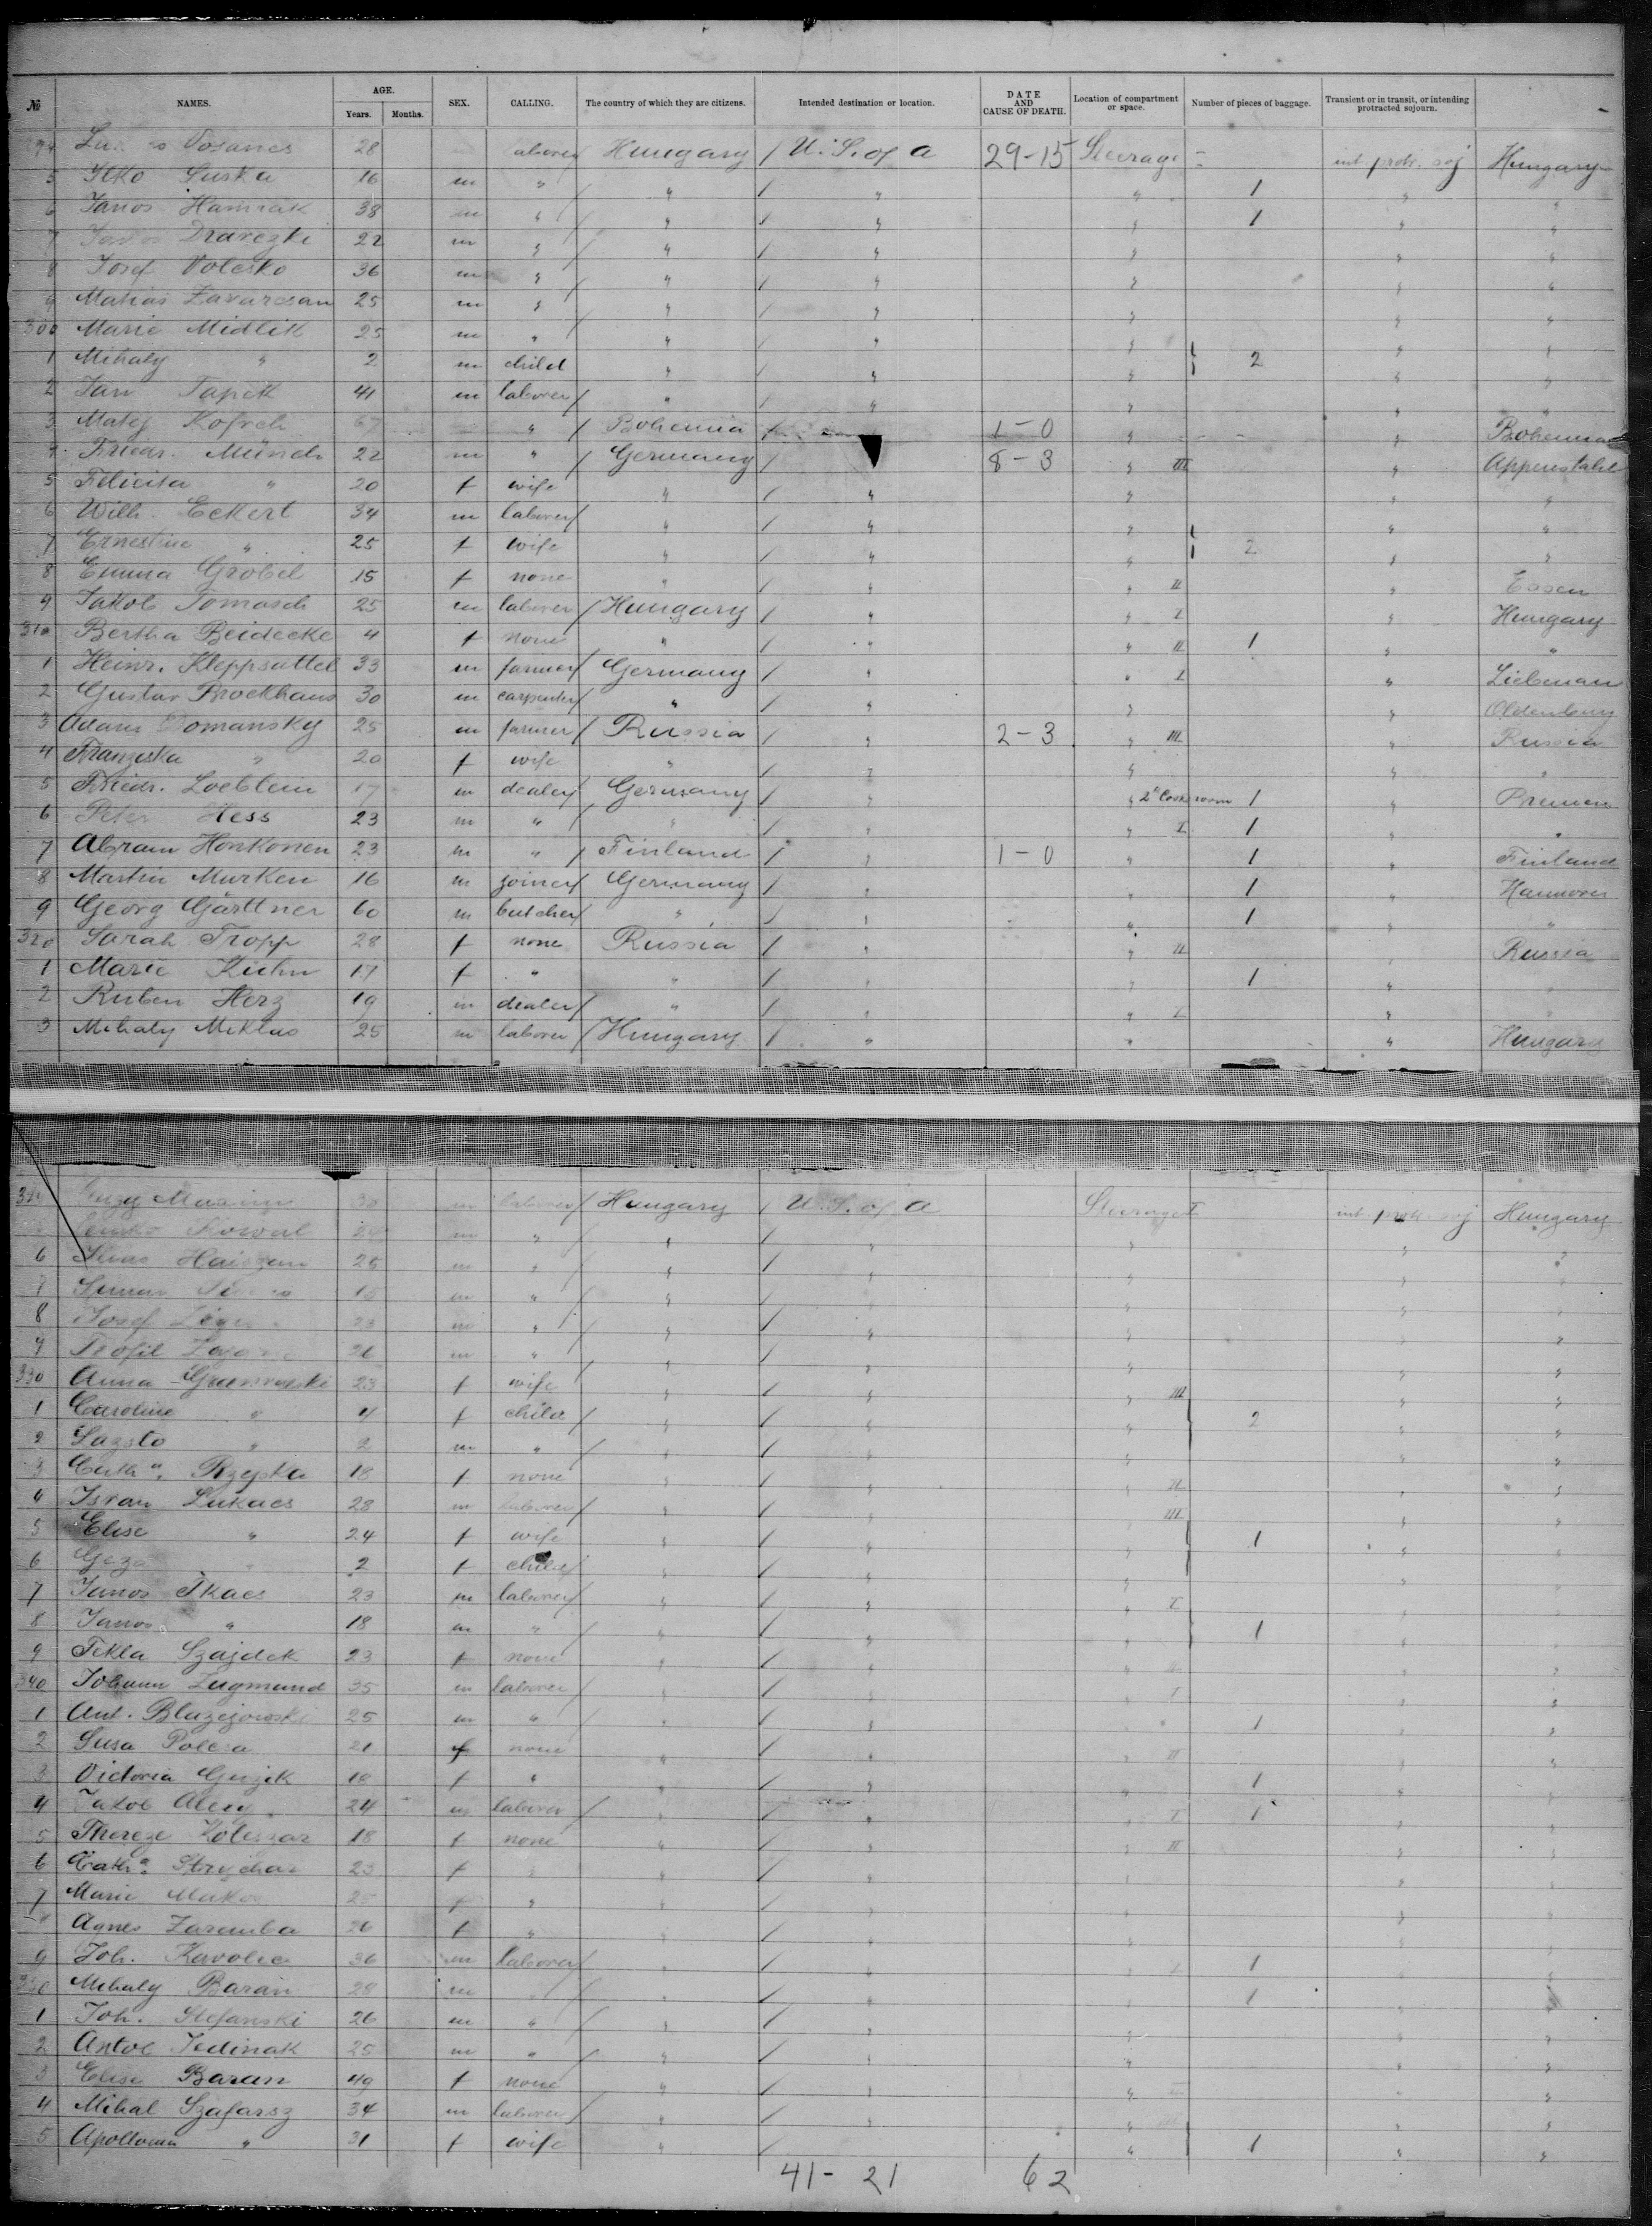 № NAMES. AGE. Years. Months. SEX. CALLING. The country of which they are citizens. Intended destination or location. DATE AND CAUSE OF DEATH. Location of compartment or space. Number of pieces of baggage. Transient or in transit, or intending protracted sojourn.
28 Hungary / U. S. of A 29-15 Steerage int. protr. soj Hungary
5 Ilko Suska 16 m " / " / " " 1 " "
6 Janos 38 m " / " / " " 1 " "
7 Draveczki 22 m " / " / " " " "
8 Josef Volesko 36 m " / " / " " " "
9 Mathias Zavarcsan 25 m " / " / " " " "
300 Marie Midlik 25 m " " / " " " "
1 Mihaly " 2 m child " / " " } 2 " "
2 Jan Tapek 41 m laborer / " / " " " "
3 Matej Kofreh " / Bohemia / 1-0 " " Bohemia
4 Friedr. Münch 22 m " / Germany / 8-3 " III " Appenstahl
5 Felicita " 20 f wife " / " " " "
6 Wilh. Eckert 34 m laborer / " / " " " "
7 Ernestine " 25 f wife " / " " } 2 " "
8 Emma Grobel 15 f none " / " " II " Essen
9 Jakob Tomasch 25 m laborer / Hungary / " " I " Hungary
310 Bertha Beidecke 4 f none " / " " II 1 " "
1 Heinr. Kleppsattel 33 m farmer / Germany / " " I " Liebenau
2 Gustav Brockhaus 30 m carpenter / " / " " " Oldenburg
3 Adam Domansky 25 m farmer / Russia / " 2-3 " III " Russia
4 Franziska " 20 f wife " / " " " "
5 Friedr. Loeblein 17 m dealer / Germany / " " 2" Cook room 1 " Bremen
6 Peter Hess 23 m " / " / " " I 1 " "
7 Abram Honkonen 23 m " / Finland / " 1-0 " 1 " Finland
8 Martin Murken 16 m joiner / Germany / " " 1 " Hannover
9 Georg Gärttner 60 m butcher / " / " " 1 " "
320 Sarah Tropp 28 f none Russia / " " II " Russia
1 Marie Kuhn 17 f " " / " " 1 " "
2 Ruben Herz 19 m dealer / " / " " I " "
3 Mihaly Miklas 25 m laborer / Hungary / " " " Hungary
m laborer / Hungary / U. S. of A Steerage I int. protr. soj Hungary
Kowal m " / " / " " " "
6 25 m " / " / " " " "
7 m " / " / " " " "
8 Josef 23 m " / " / " " " "
9 Teofil 26 m " / " / " " " "
330 Anna 23 f wife " / " " III " "
1 Caroline " 4 f child / " / " " } 2 " "
2 " 2 m " / " / " " " "
3 Cath". Rzepka 18 f none " / " " II " "
4 Istvan Lukacs 28 m laborer / " / " III " "
5 Elise " 24 f wife " / " " } 1 " "
6 Geza " 2 f child / " / " " " "
7 Janos Tkacs 23 m laborer / " / " " I " "
8 Janos " 18 m " / " / " " } 1 " "
9 Tekla Szajdek 23 f none " / " " " "
340 Johann Zugmund 35 m laborer / " / " " I " "
1 Ant. Blazejowski 25 m " / " / " " 1 " "
2 Susa Polcsa 21 f none " / " " II " "
3 Victoria Guzik 18 f " " / " " 1 " "
4 Jakob 24 m laborer / " / " " I 1 " "
5 Thereze Koleszar 18 f none " / " " II " "
6 Cath". 23 f " " / " " " "
7 Marie 25 f " " / " " " "
Agnes Zaremba 26 f " " / " " " "
9 Joh. Kavolic 36 m laborer / " / " " I 1 " "
350 Mihaly Baran 28 m " / " / " " 1 " "
1 Joh. Stefanski 26 m " / " / " " " "
2 Antoe Jedinak 25 m " / " / " " " "
3 Elise Baran 49 f none " / " " " "
4 Mihal Szafarsz 34 m laborer / " / " " " "
5 Apollonia " 31 f wife " / " } 1 " "
41- 21 62